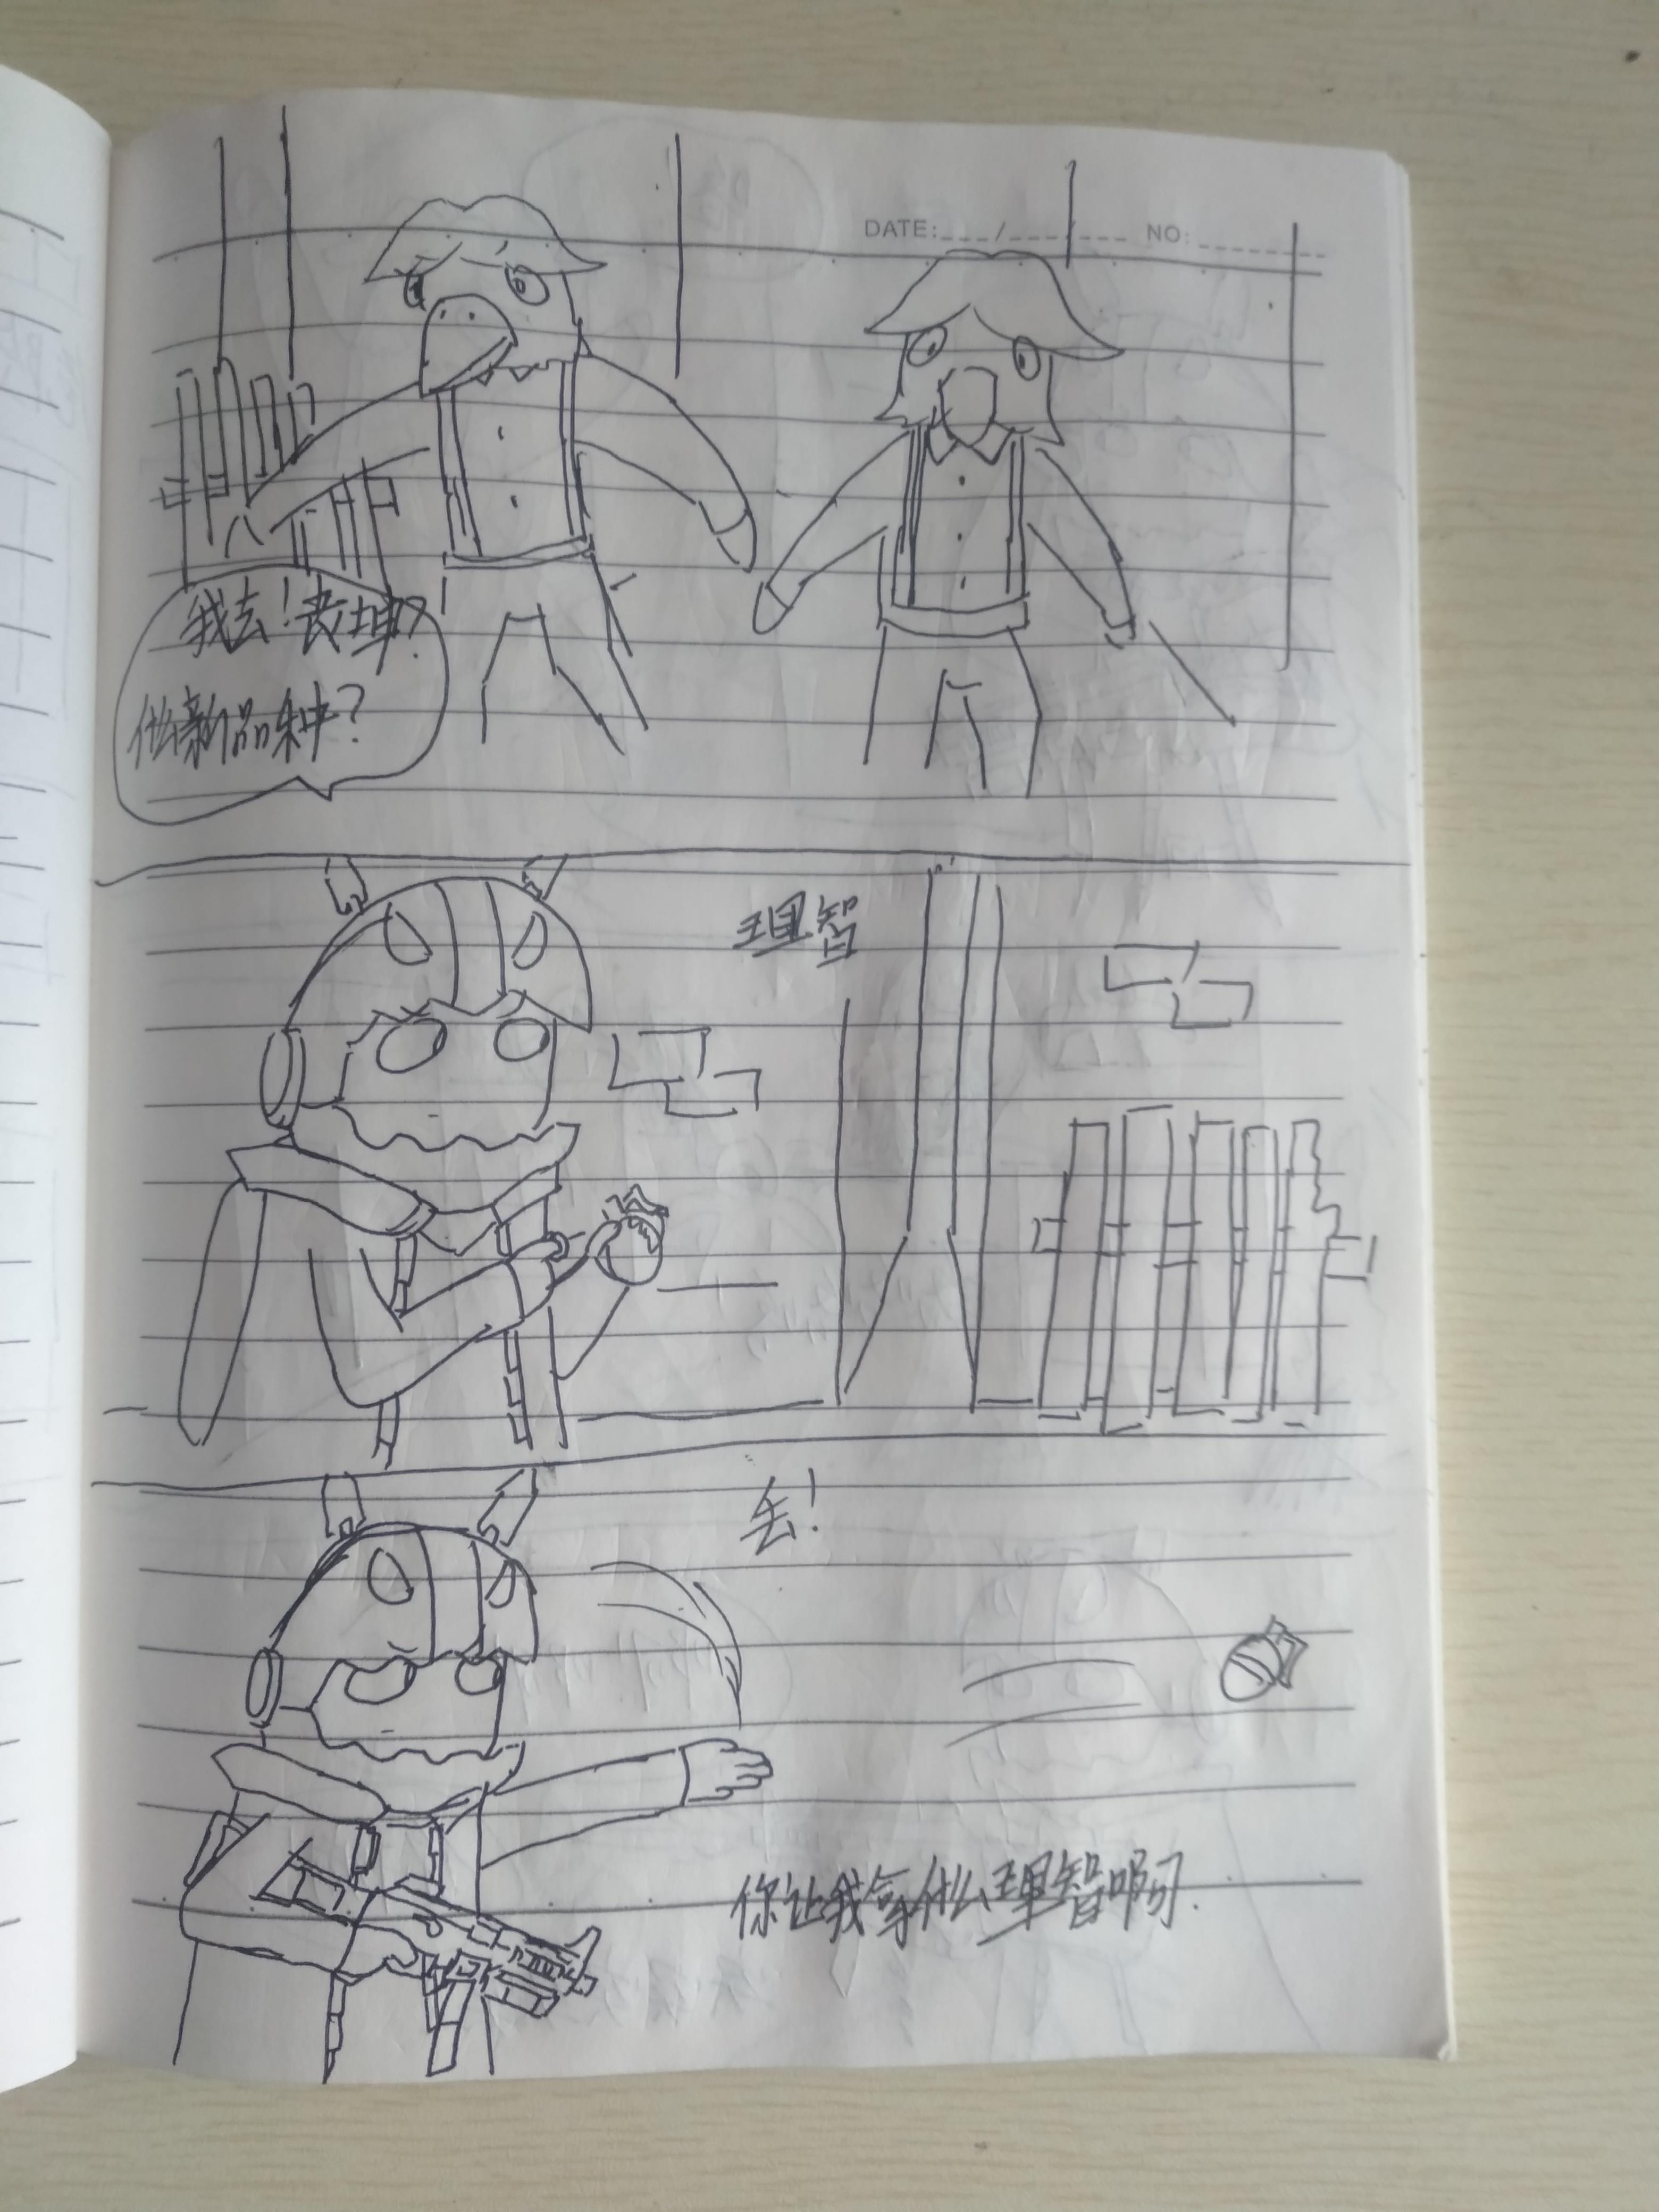 DATE:___/___/___ NO:______
我去！丧坤？！
什么新品种？
理智
丢！
你让我拿什么理智啊